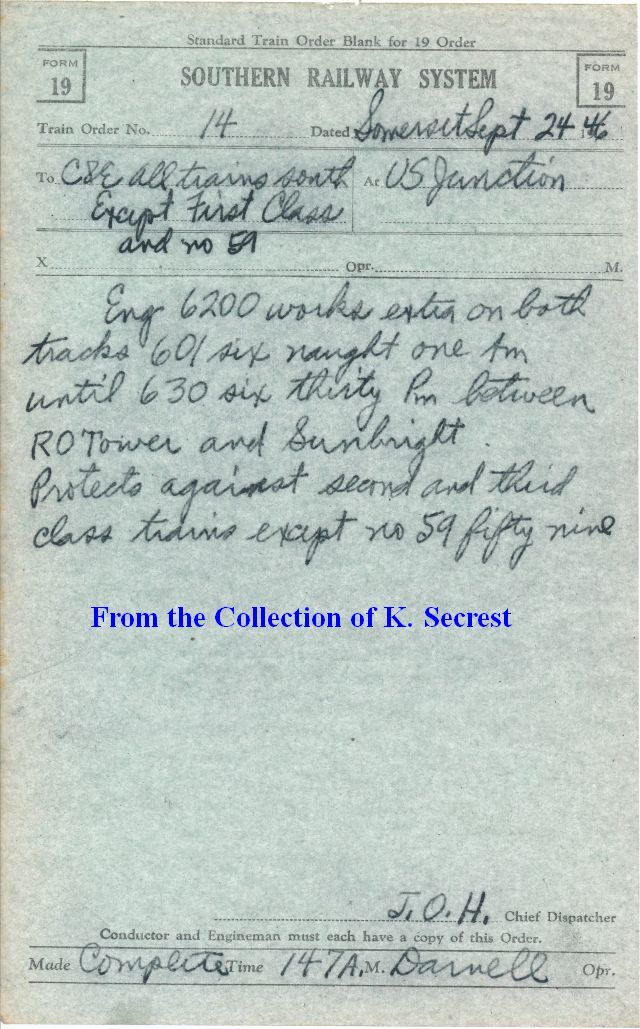 Standard Train Order Blank for 19 Order
FORM 19
SOUTHERN RAILWAY SYSTEM
FORM 19
Train Order No. 14 Dated Somerset Sept 24 1946
To C&E all trains south At US Junction
Except First Class
and no 59
X Opr. M.
Eng 6200 works extra on both
tracks 601 six naught one Am
until 630 six thirty Pm between
RO Tower and Sunbright.
Protects against second and third
class trains except no 59 fifty nine
From the Collection of K. Secrest
J.O.H. Chief Dispatcher
Conductor and Engineman must each have a copy of this Order.
Made Complete Time 147 A.M. Darnell Opr.